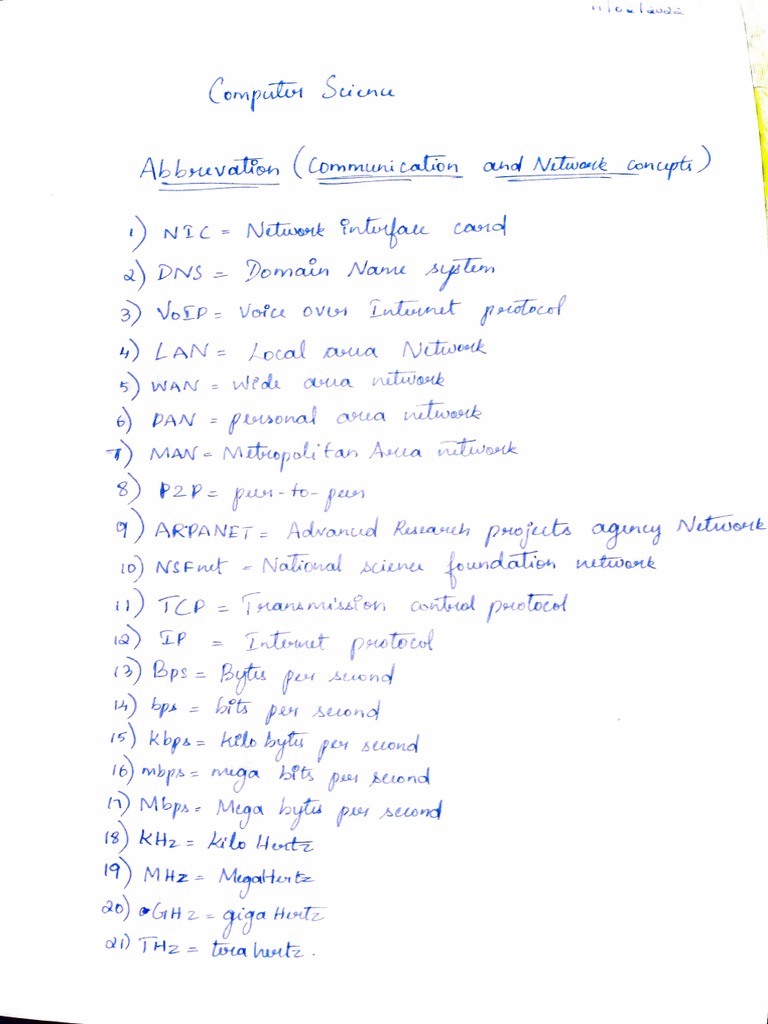 Computer Science
Abbrevation (Communication and Network concepts)
1) NIC = Network interface card
2) DNS = Domain Name system
3) VoIP = Voice over Internet protocol
4) LAN = Local area Network
5) WAN = Wide area network
6) PAN = personal area network
7) MAN = Metropolitan Area network
8) P2P = peer-to-peer
9) ARPANET = Advanced Research projects agency Network
10) NSFnet = National science foundation network
11) TCP = Transmission control protocol
12) IP = Internet protocol
13) Bps = Bytes per second
14) bps = bits per second
15) Kbps = kilo bytes per second
16) mbps = mega bits per second
17) Mbps = Mega bytes per second
18) KHz = Kilo Hertz
19) MHz = MegaHertz
20) GHz = giga Hertz
21) THz = tera hertz.